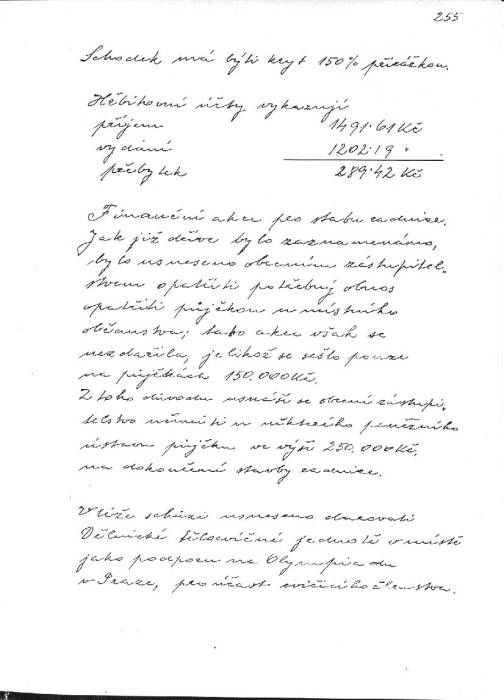 255
Schodek má býti kryt 150% přirážkou.
Hřbitovní účty vykazují
příjem 1491·61 Kč
vydání 1202·19 "
přebytek 289·42 Kč
Finanční akce pro stavbu radnice.
Jak již dříve bylo zaznamenáno,
bylo usneseno obecním zastupitel-
stvem opatřiti potřebný obnos
opatřiti půjčkou u místního
občanstva; tato akce však se
nezdařila, jelikož se sešlo pouze
na půjčkách 150.000 Kč.
Z toho důvodu usnáší se obecní zastupi-
telstvo učiniti u některého peněžního
ústavu půjčku ve výši 250.000 Kč.
na dokončení stavby radnice.
V téže schůzi usneseno darovati
Dělnické tělocvičné jednotě v místě
jako podporu na Olympiadu
v Praze, pro účast cvičícího členstva.